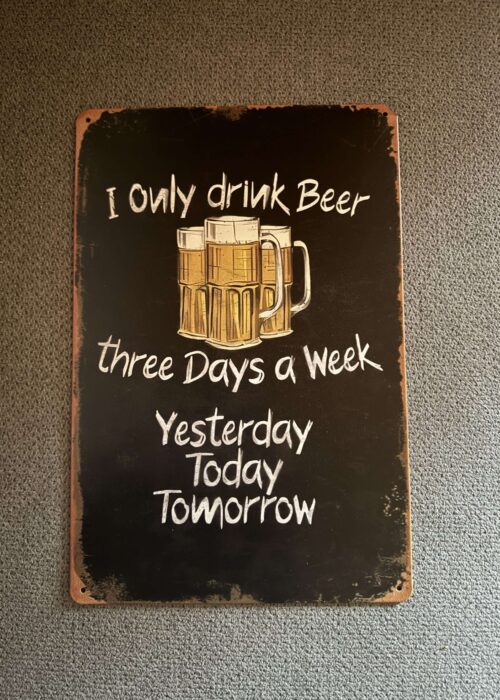 I Only drink Beer
three Days a Week
Yesterday
Today
Tomorrow